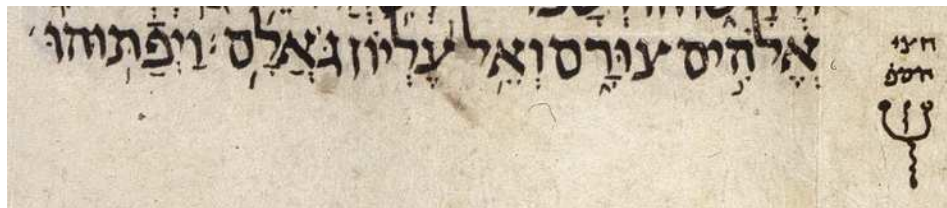 אֱלֹהִים צוּרָם וְאֵל עֶלְיוֹן גֹּאֲלָם׃ וַיְפַתּוּהוּ
חצי
הספ